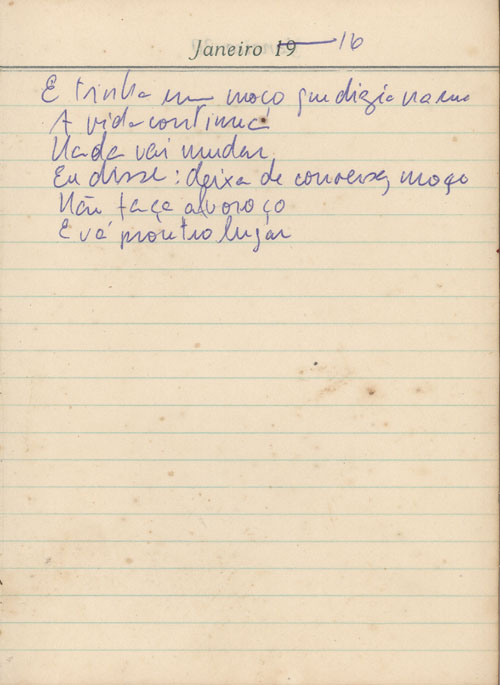 Janeiro 19 16
E tinha um moço que dizia na rua
A vida continua
Nada vai mudar
Eu disse: deixa de conversa, moço
Não faça alvoroço
E vá pr'outro lugar